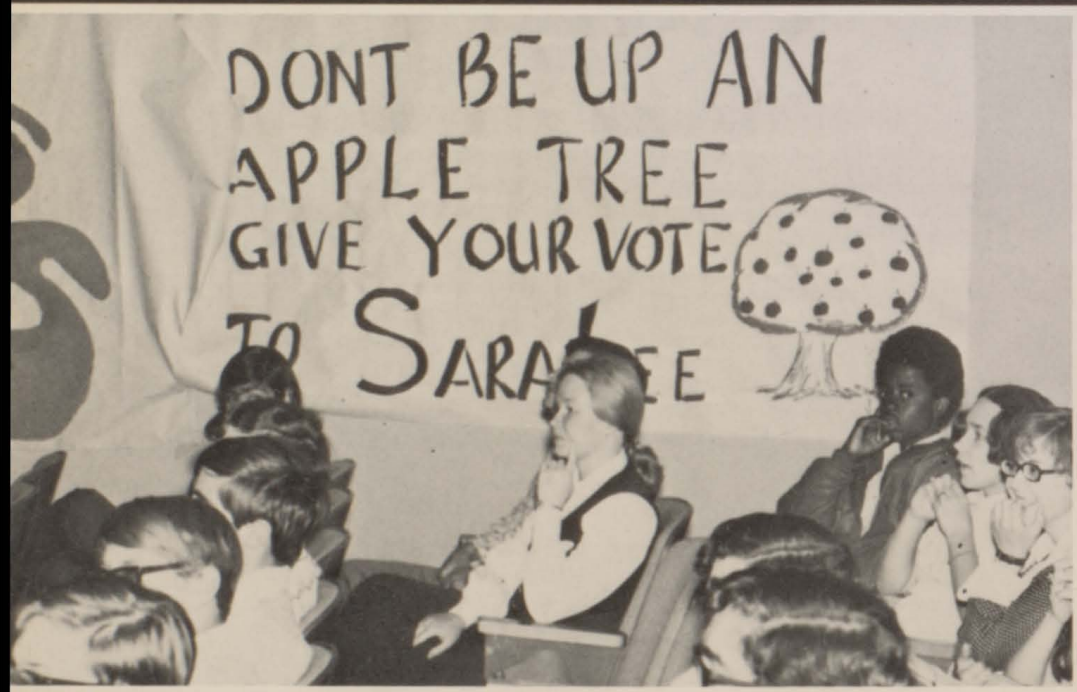 DONT BE UP AN
APPLE TREE
GIVE YOUR VOTE
TO SARA LEE